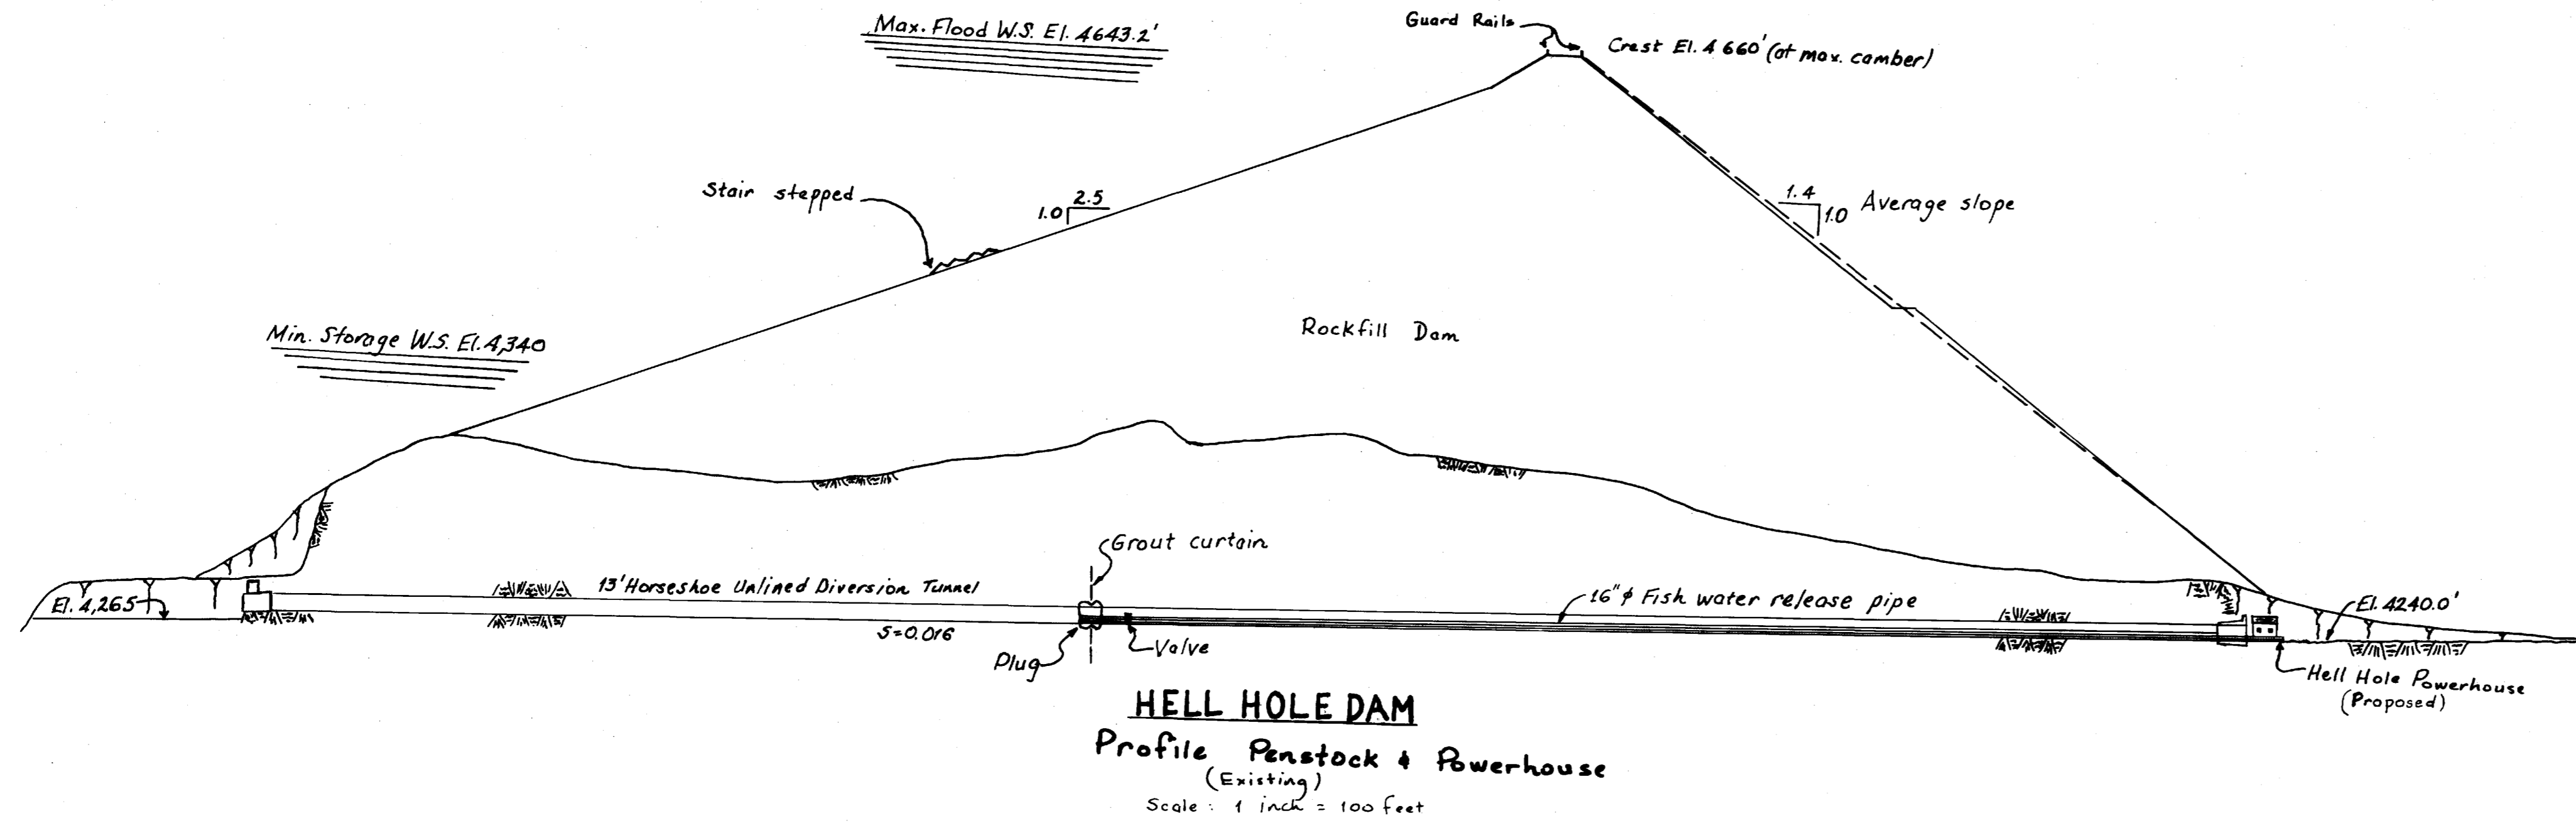 Max. Flood W.S. El. 4643.2'
Guard Rails
Crest El. 4660' (at max. camber)
Stair stepped
2.5
1.0
1.4
1.0
Average slope
Rockfill Dam
Min. Storage W.S. El. 4,340
Grout curtain
El. 4,265
13' Horseshoe Unlined Diversion Tunnel
16" ϕ Fish water release pipe
El. 4240.0'
S=0.016
Plug
Valve
Hell Hole Powerhouse
(Proposed)
HELL HOLE DAM
Profile Penstock & Powerhouse
(Existing)
Scale: 1 inch = 100 feet